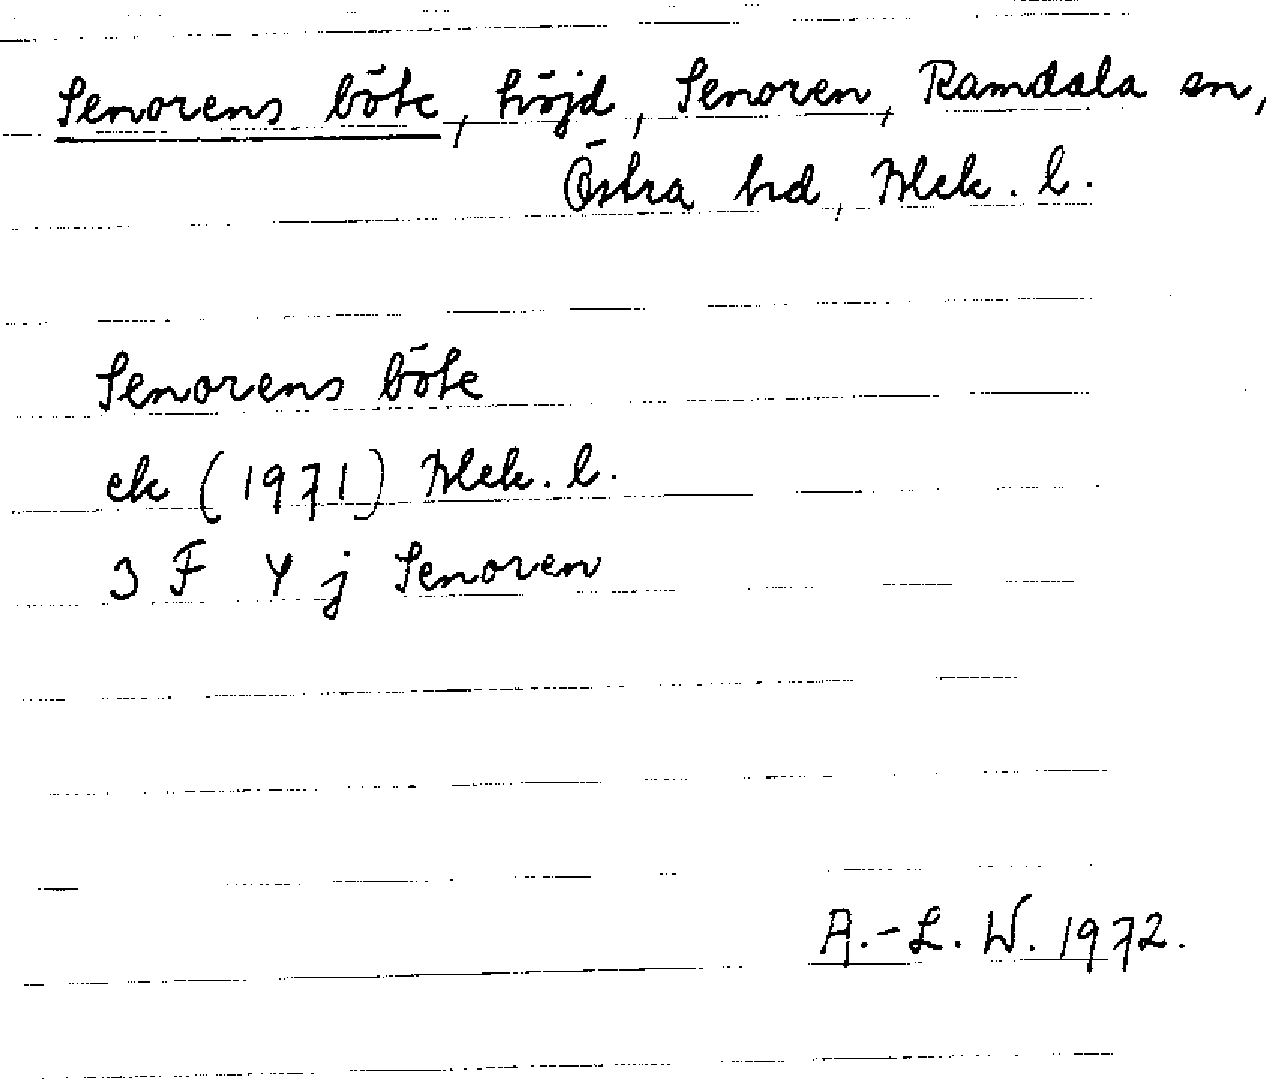 Senorens böte, höjd, Senoren, Ramdala sn,
Östra hd, Blek. l.
Senorens böte
ek (1971) Blek. l.
3 F Y j Senoren
A.-L. W. 1972.